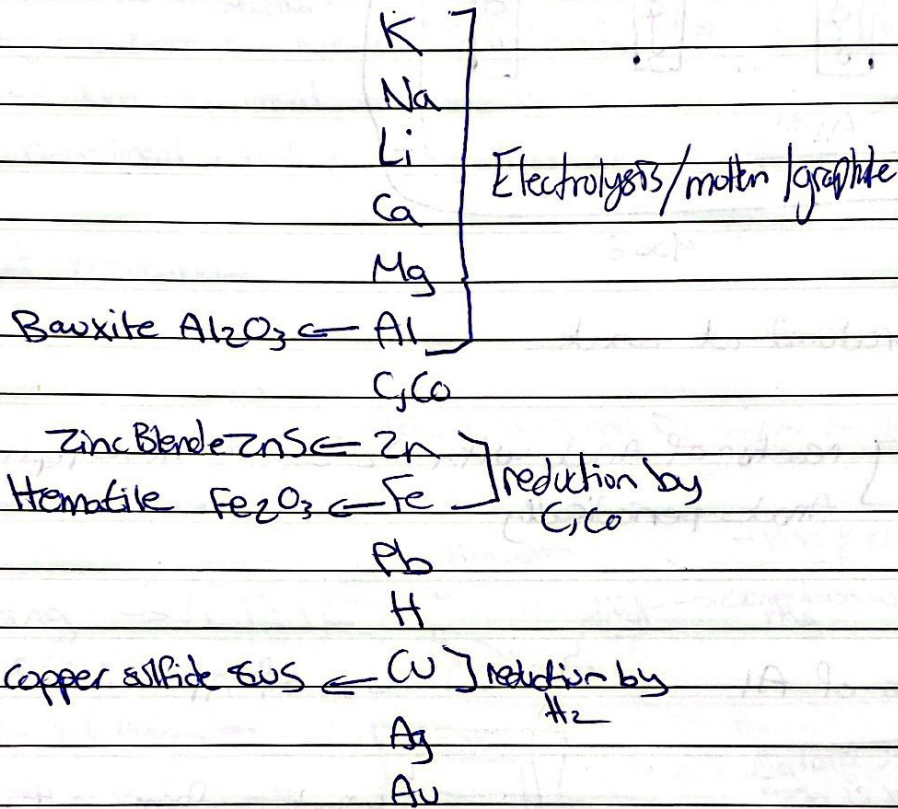 K
Na
Li
Electrolysis/molten/graphite
Ca
Mg
Bauxite Al2O3 ← Al
C, CO
Zinc Blende ZnS ← Zn
Hematite Fe2O3 ← Fe
reduction by
C, CO
Pb
H
copper sulfide CuS ← Cu
reduction by
H2
Ag
Au